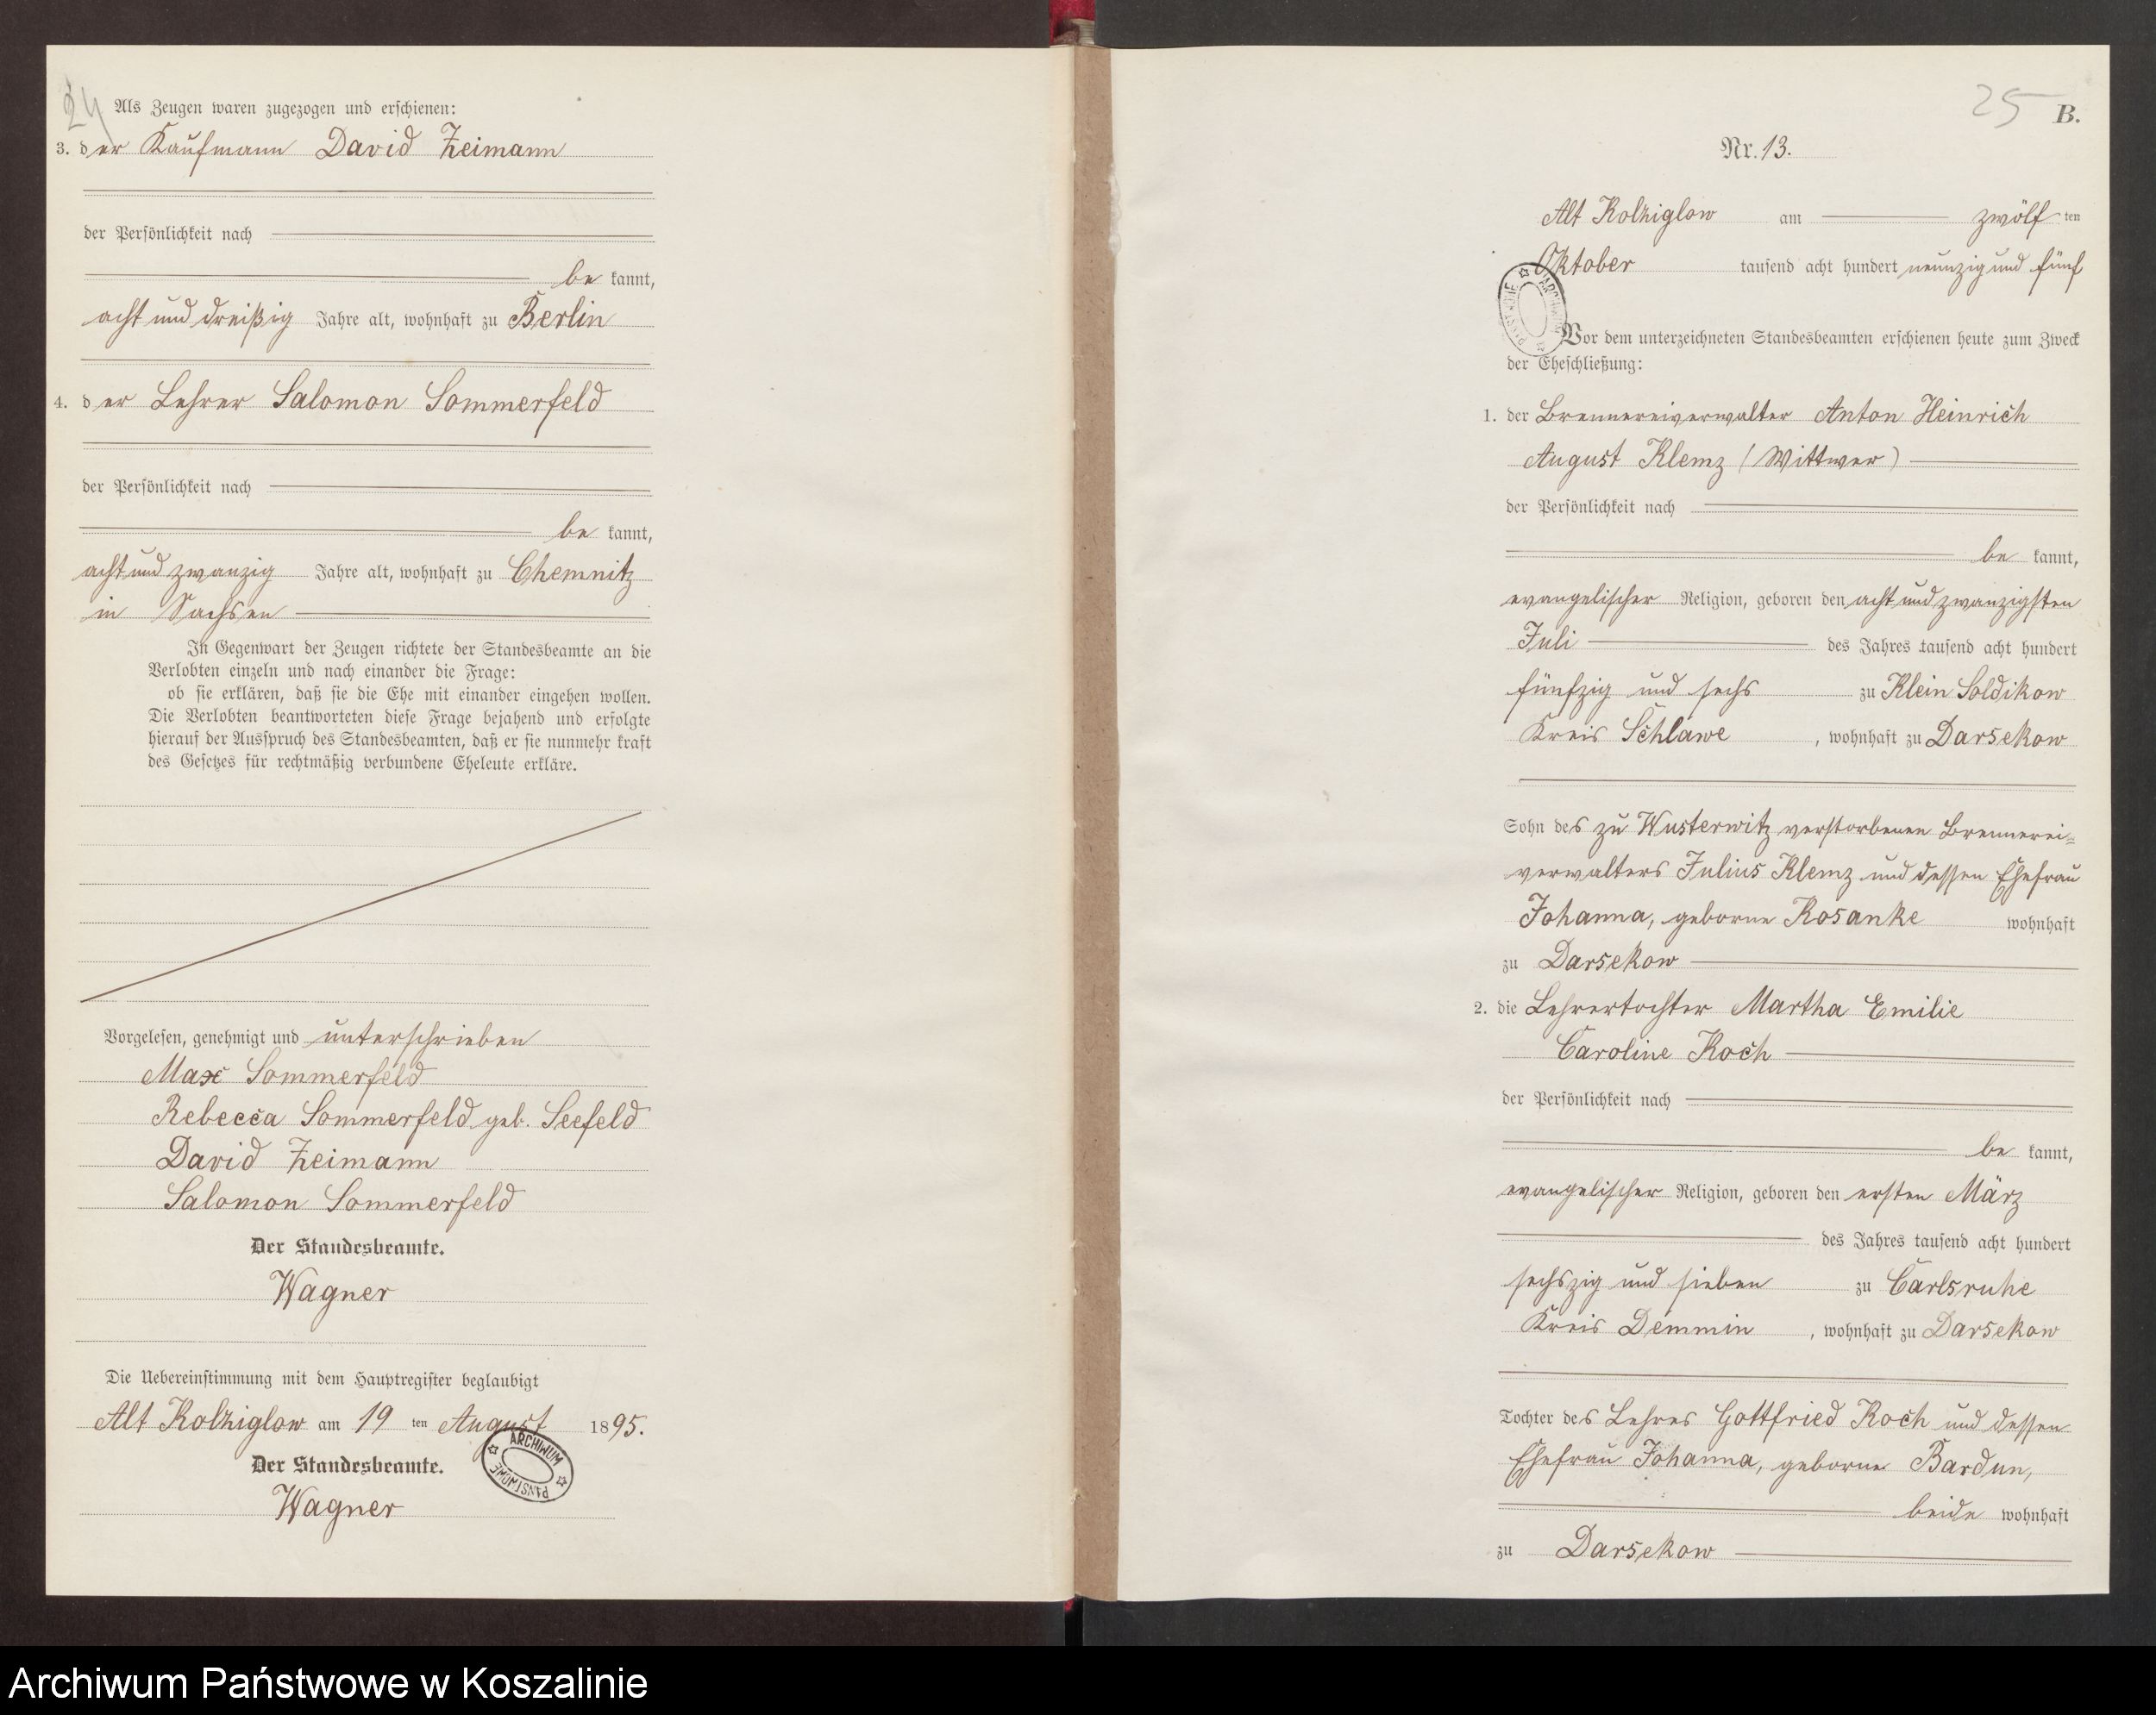 24
Als Zeugen waren zugezogen und erschienen:
3. der Kaufmann David Zeimann
der Persönlichkeit nach
be kannt,
acht und dreißig Jahre alt, wohnhaft zu Berlin
4. der Lehrer Salomon Sommerfeld
der Persönlichkeit nach
be kannt,
acht und zwanzig Jahre alt, wohnhaft zu Chemnitz
in Sachsen
In Gegenwart der Zeugen richtete der Standesbeamte an die
Verlobten einzeln und nach einander die Frage:
ob sie erklären, daß sie die Ehe mit einander eingehen wollen.
Die Verlobten beantworteten diese Frage bejahend und erfolgte
hierauf der Ausspruch des Standesbeamten, daß er sie nunmehr kraft
des Gesetzes für rechtmäßig verbundene Eheleute erkläre.
Vorgelesen, genehmigt und unterschrieben
Max Sommerfeld
Rebecca Sommerfeld geb. Seefeld
David Zeimann
Salomon Sommerfeld
Der Standesbeamte.
Wagner
Die Uebereinstimmung mit dem Hauptregister beglaubigt
Alt Kolziglow am 19 ten August 1895.
Der Standesbeamte.
Wagner
ARCHIWUM PAŃSTWOWE
25
B.
Nr. 13.
Alt Kolziglow am zwölf ten
Oktober tausend acht hundert neunzig und fünf
Vor dem unterzeichneten Standesbeamten erschienen heute zum Zweck
der Eheschließung:
1. der Brennereiverwalter Anton Heinrich
August Klemz (Wittwer)
der Persönlichkeit nach
be kannt,
evangelischer Religion, geboren den acht und zwanzigsten
Juli des Jahres tausend acht hundert
fünfzig und sechs zu Klein Soldikow
Kreis Schlawe, wohnhaft zu Darsekow
Sohn des zu Wusterwitz verstorbenen Brennerei=
verwalters Julius Klemz und dessen Ehefrau
Johanna, geborne Kosanke wohnhaft
zu Darsekow
2. die Lehrertochter Martha Emilie
Caroline Koch
der Persönlichkeit nach
be kannt,
evangelischer Religion, geboren den ersten März
des Jahres tausend acht hundert
sechszig und sieben zu Carlsruhe
Kreis Demmin, wohnhaft zu Darsekow
Tochter des Lehres Gottfried Koch und dessen
Ehefrau Johanna, geborne Bardun,
beide wohnhaft
zu Darsekow
Archiwum Państwowe w Koszalinie